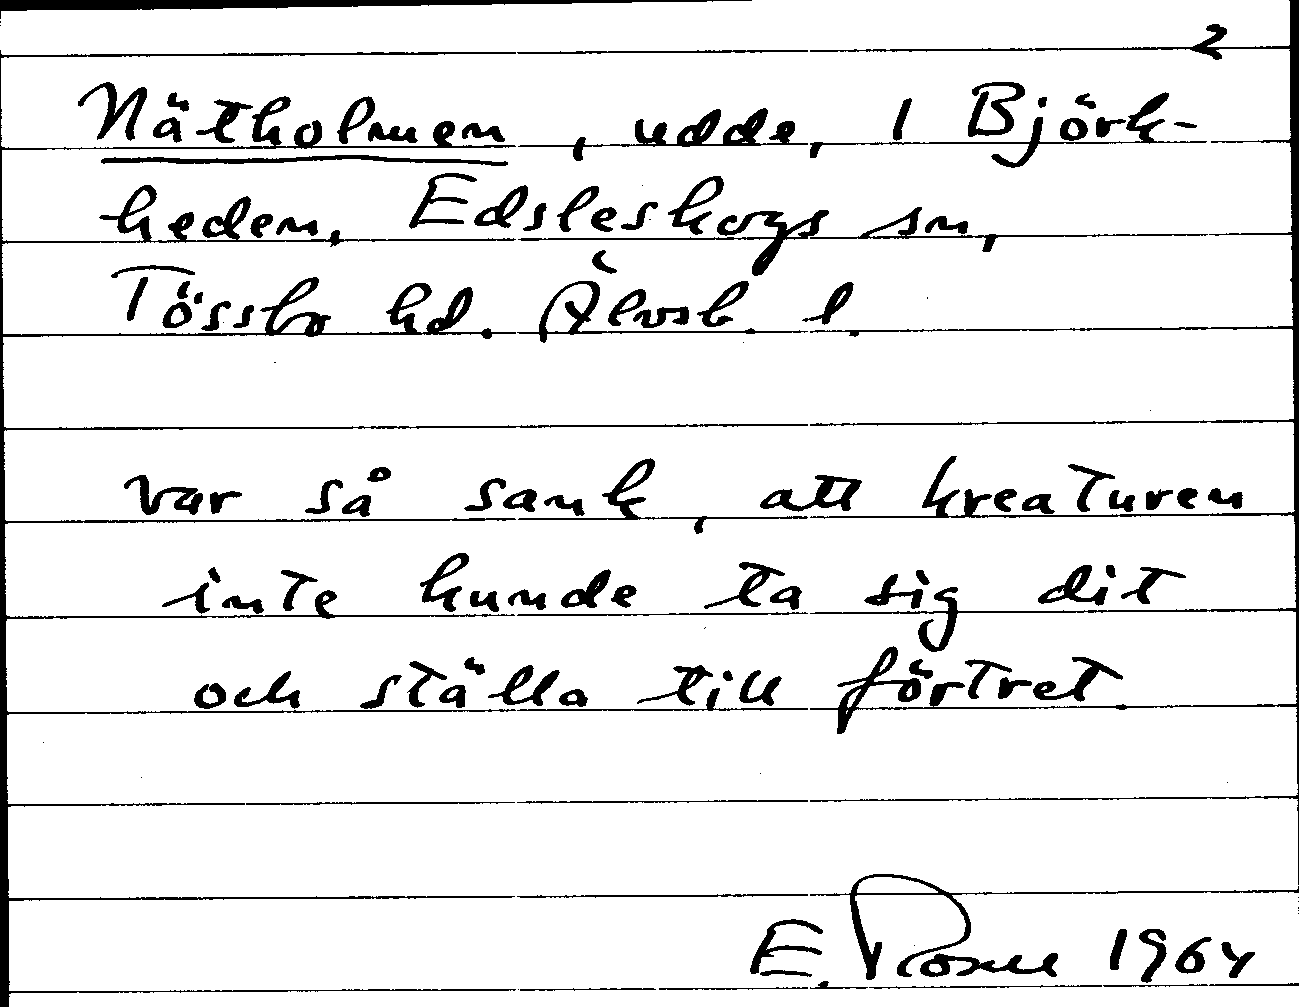 2
Nätholmen, udde, 1 Björk-
heden, Edsleskogs sn,
Tössbo hd. Älvsb. l.
var så sank, att kreaturen
inte kunde ta sig dit
och ställa till förtret.
E. 1964